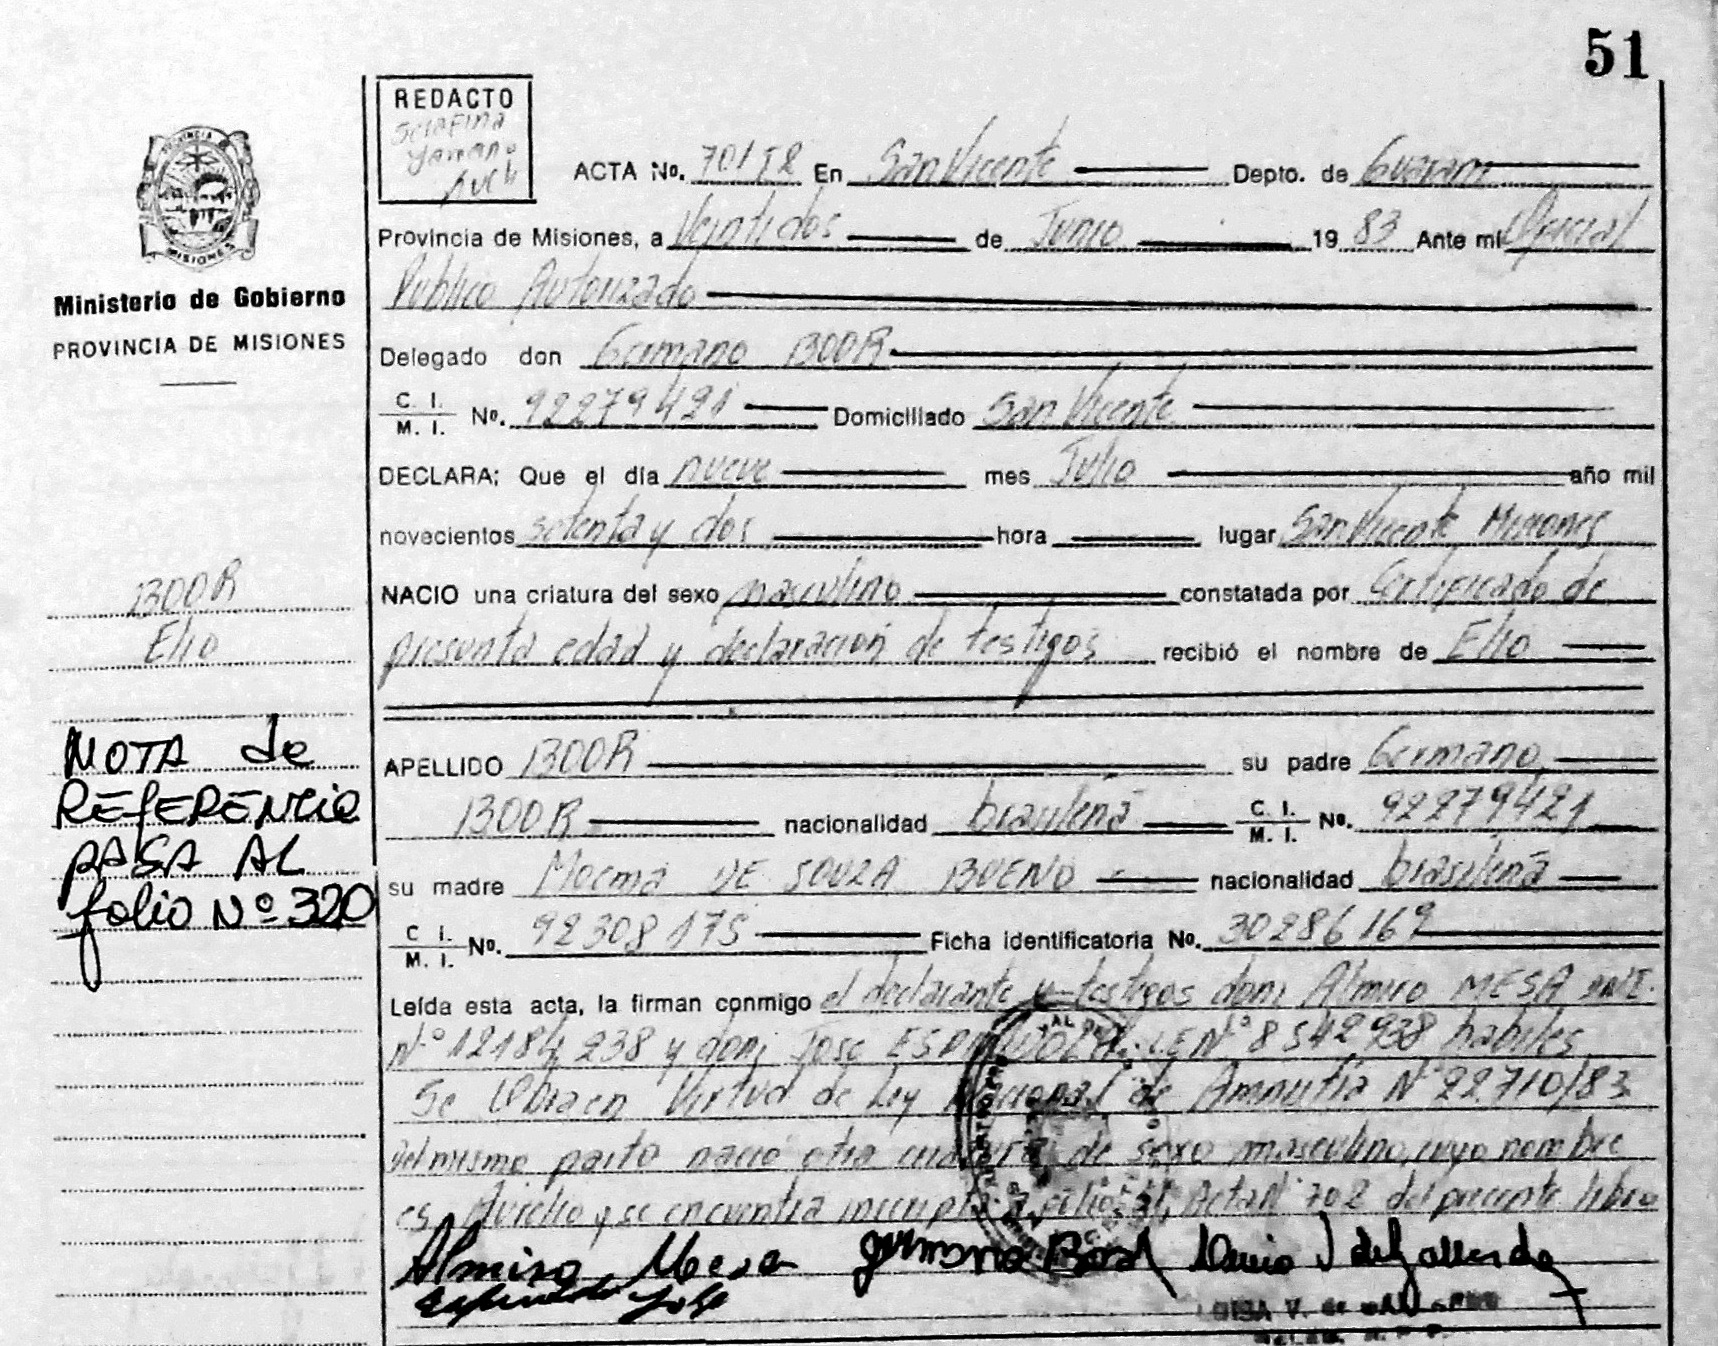 51
REDACTO
Serafina
ACTA No. 701 T2 En San Vicente Depto. de Guarani
Provincia de Misiones, a Veintidos de Junio 19 83 Ante mi Oficial
Publico Autorizado
Delegado don Germano BOOR
C. I. / M. I. No. 92279421 Domiciliado San Vicente
DECLARA; Que el día nueve mes Julio año mil
novecientos setenta y dos hora lugar San Vicente Misiones
NACIO una criatura del sexo masculino constatada por Certificado de
presunta edad y declaracion de testigos recibió el nombre de Elio
APELLIDO BOOR su padre Germano
BOOR nacionalidad brasileña C. I. / M. I. No. 92279421
su madre Moema DE SOUZA BUENO nacionalidad brasileña
C. I. / M. I. No. 92308175 Ficha identificatoria No. 30286169
Leída esta acta, la firman conmigo el declarante y testigos don; Almiro MESA DNI.
Nº 12184238 y don; Jose ESPINDOLA. LE Nº 8542938 habiles
Se labra en Virtud de Ley Nacional de Amnistia Nº 22.710/83
Del mismo parto nació otra criatura de sexo masculino, cuyo nombre
es Aurelio y se encuentra inscripta a folio 51, Acta Nº 702 del presente libro
Almiro Mesa Germano Boor
Espindola Jose
LUISA V.
PROVINCIA
MISIONES
Ministerio de Gobierno
PROVINCIA DE MISIONES
BOOR
Elio
NOTA de
REFERENCIA
PASA AL
folio Nº 320